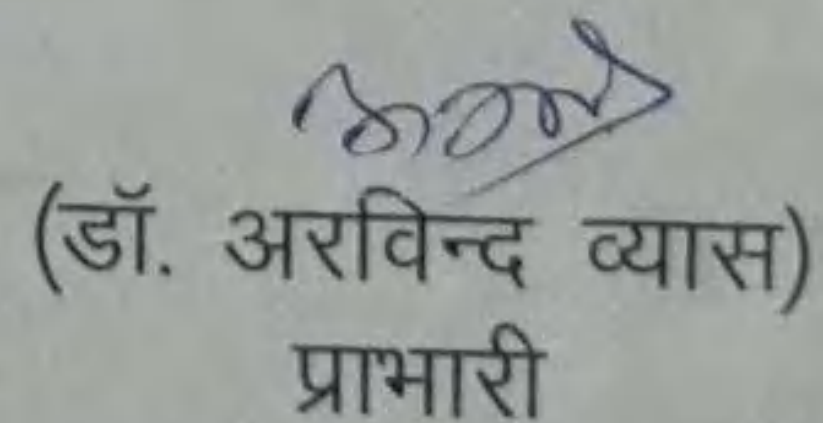 (डॉ. अरविन्द व्यास)
प्राभारी